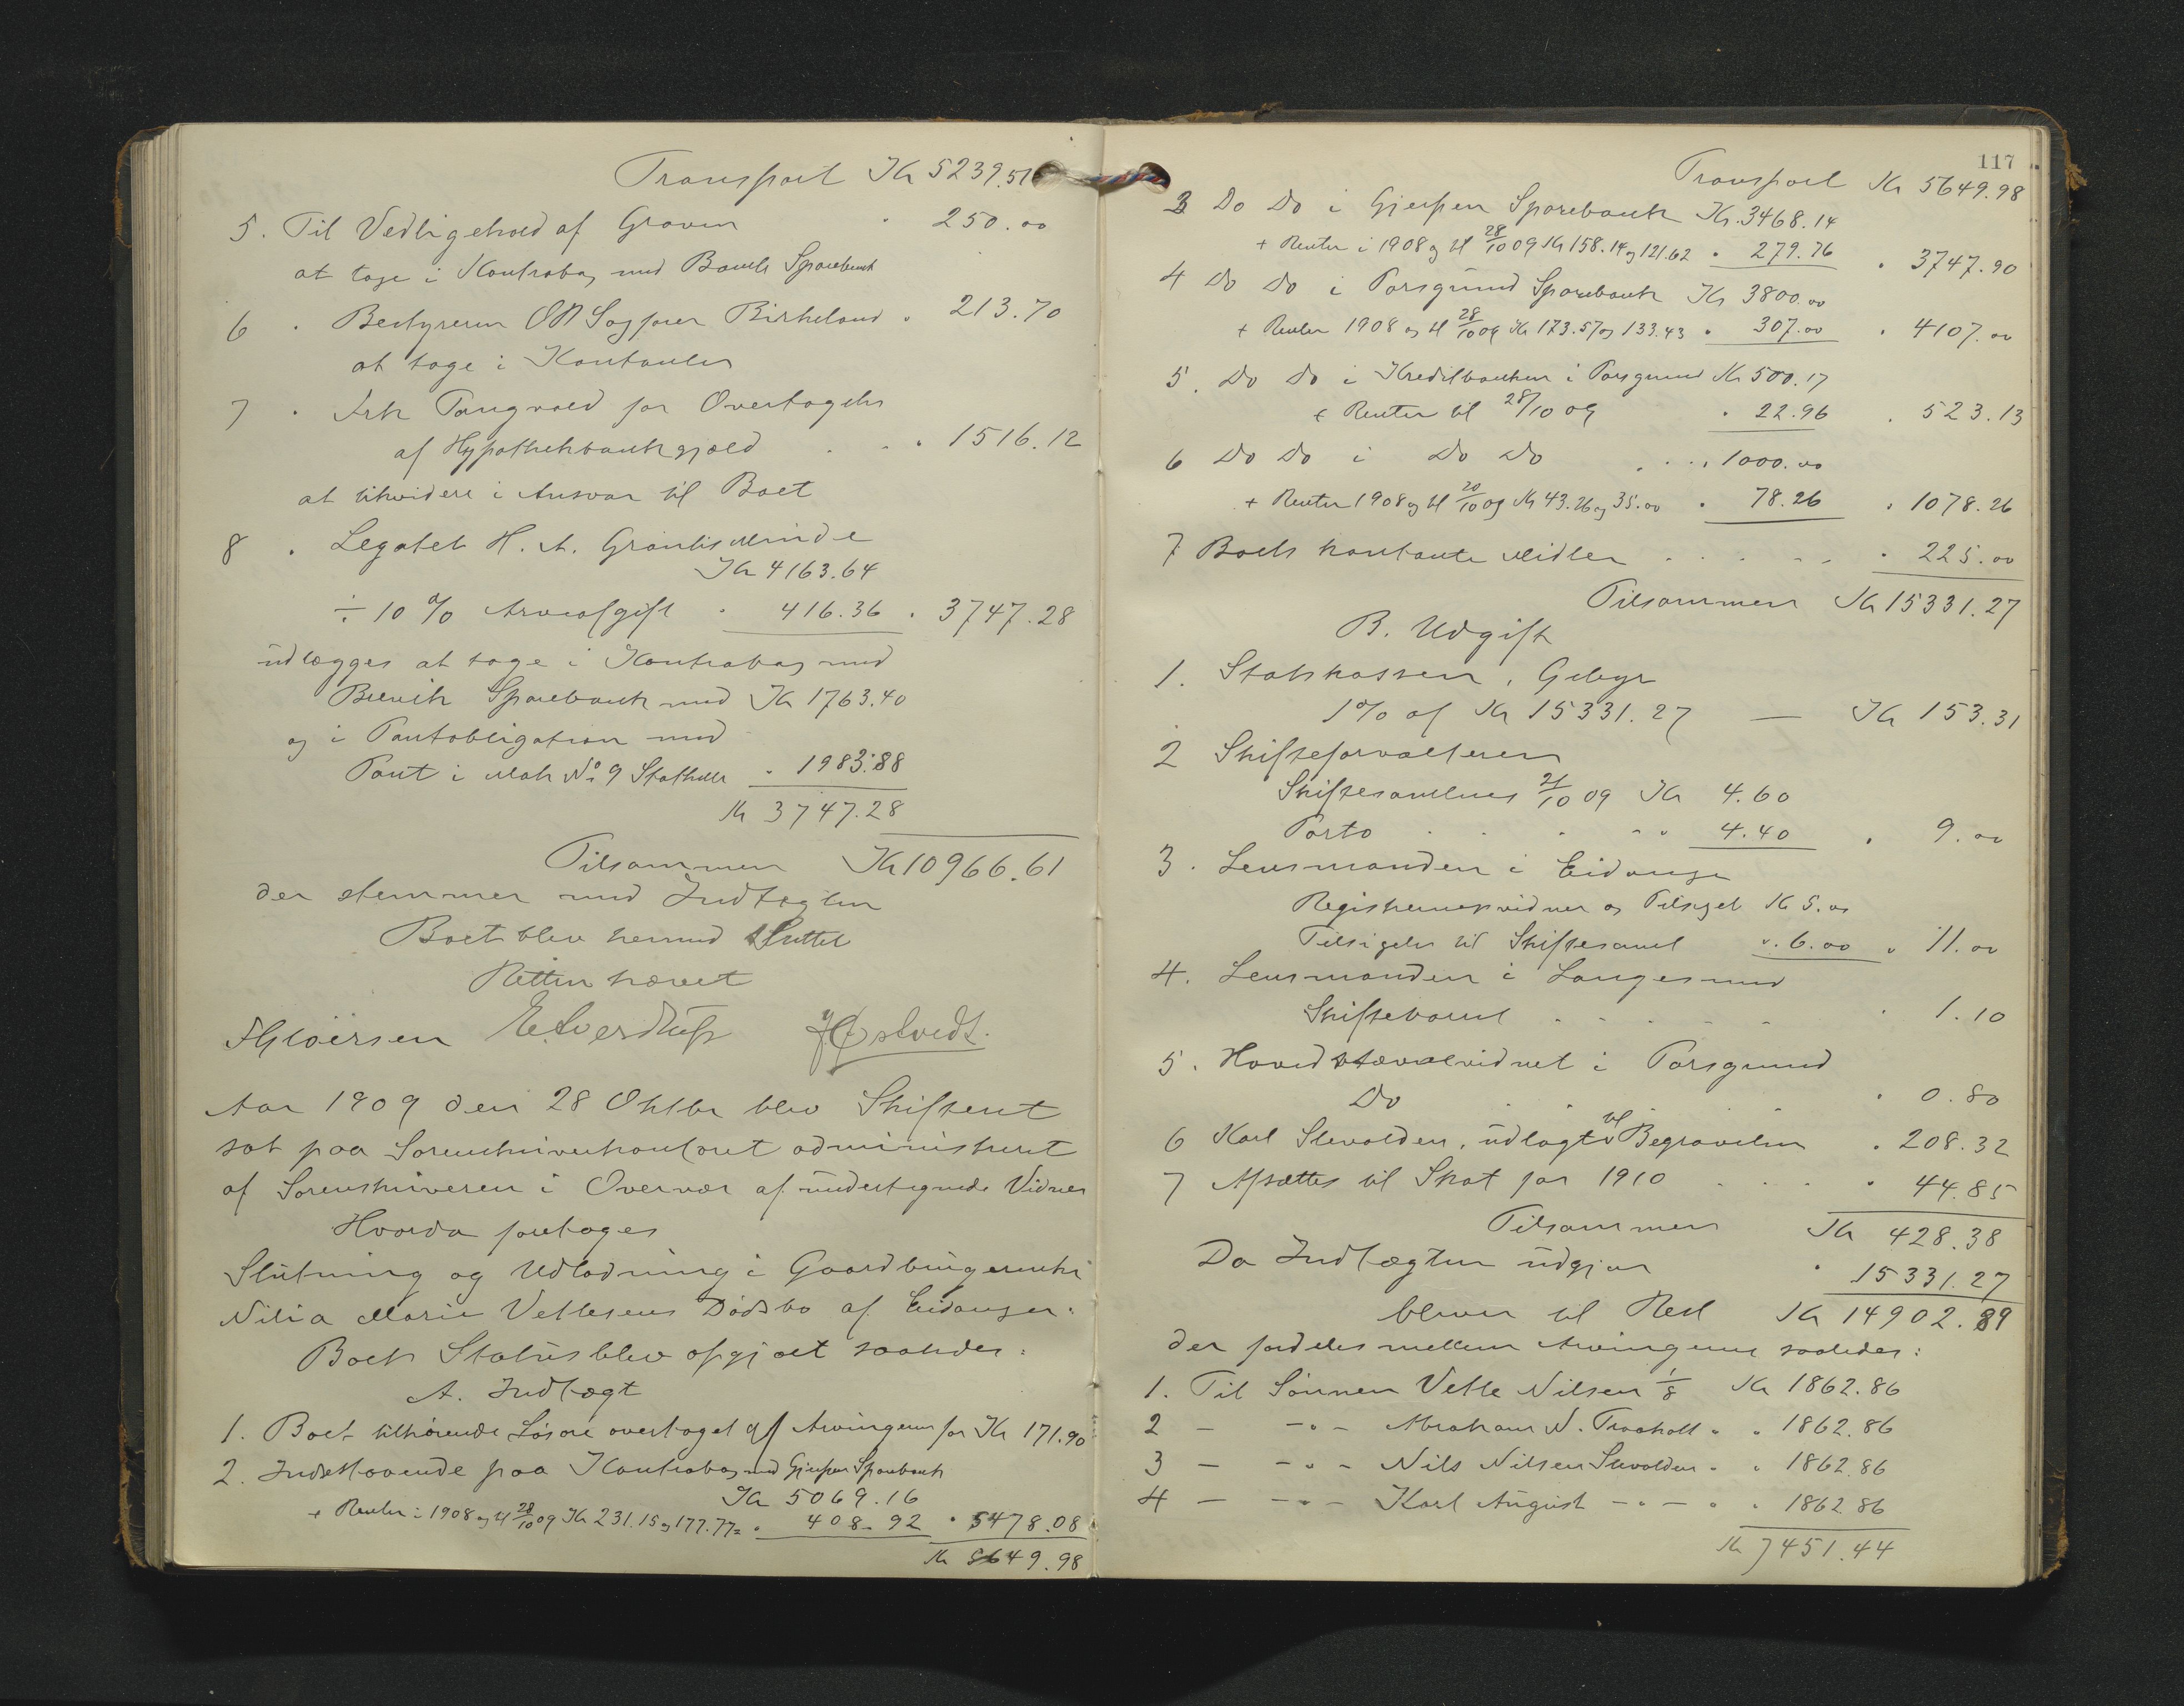 Transport Kr 5239.51
5. Til Vedligehold af Graven " 250.00
at tage i Kontrabog med Bamle Sparebank
6 " Bestyreren OR Sagfører Birkeland " 213.70
at tage i Kontanter
7 " Frk Tangvald for Overtagelse
af Hypothekbankgjæld . . " 1516.12
at likvidere i Ansvar til Boet
8 " Legatet H. A. Grontis Minde
Kr 4163.64
÷ 10 % Arveafgift " 416.36 " 3747.28
udlægges at tage i Kontrabog med
Brevik Sparebank med Kr 1763.40
og i Pantobligation med
Pant i Matr No 9 Stathelle " 1983.88
Kr 3747.28
Tilsammen Kr 10966.61
der stemmer med Indtægten
Boet blev hermed sluttet
Retten hævet
Aar 1909 den 28 Oktbr blev Skifteret
sat paa Sorenskriverkontoret administreret
af Sorenskriveren i Overvær af undertegnede Vidner
Hvorda foretoges
Slutning og Udlodning i Gaardbrugerenke
Nilia Marie Vetlesens Dødsbo af Eidanger.
Boets Status blev opgjort saaledes:
A. Indtægt
1. Boet tilhørende Løsøre overtaget af Arvingerne for Kr 171.90
2. Indestaaende paa Kontrabog med Gjerpen Sparebank
Kr 5069.16
+ Renter i 1908 og til 28/10 09 Kr 231.15 og 177.77 = " 408.92 " 5478.08
Kr 5649.98
117
Transport Kr 5649.98
3 Do Do i Gjerpen Sparebank Kr. 3468.14
+ Renter i 1908 og til 28/10 09 Kr 158.14 og 121.62 " 279.76 " 3747.90
4 Do Do i Porsgrund Sparebank Kr 3800.00
+ Renter 1908 og til 28/10 09 Kr 173.57 og 133.43 " 307.00 " 4107.00
5. Do Do i Kreditbanken i Porsgrund Kr 500.17
+ Renter til 28/10 09 " 22.96 " 523.13
6 Do Do i Do Do . . . " 1000.00
+ Renter 1908 og til 20/10 09 Kr 43.26 og 35.00 " 78.26 " 1078.26
7 Boets kontante Midler . . . . . " 225.00
Tilsammen Kr 15331.27
B. Udgift
1. Statskassen, Gebyr
1% af Kr 15331.27 — Kr 153.31
2 Skifteforvalteren
Skiftesamling 21/10 09 Kr 4.60
Porto . . . " 4.40 " 9.00
3. Lensmanden i Eidanger
Registreringsvidner og Tilsigel Kr 5.00
Tilsigelse til Skiftesaml " 6.00 " 11.00
4. Lensmanden i Langesund
Skiftevarsel . . . . . " 1.10
5. Hovedstævnevidnet i Porsgrund
Do . . . . " 0.80
6 Karl Slevolden, udlagt til Begravelsen " 208.32
7 Afsættes til Skat for 1910 . . . " 44.85
Tilsammen Kr 428.38
Da Indtægten udgjør " 15331.27
bliver til Rest Kr 14902.89
der fordeles mellem Arvingerne saaledes:
1. Til Sønnen Vetle Nilsen 1/8 Kr 1862.86
2 — -"- Abraham N. Traaholt " " 1862.86
3 — -"- Nils Nilsen Slevolden " " 1862.86
4 — -"- Karl August -"- " " 1862.86
Kr 7451.44